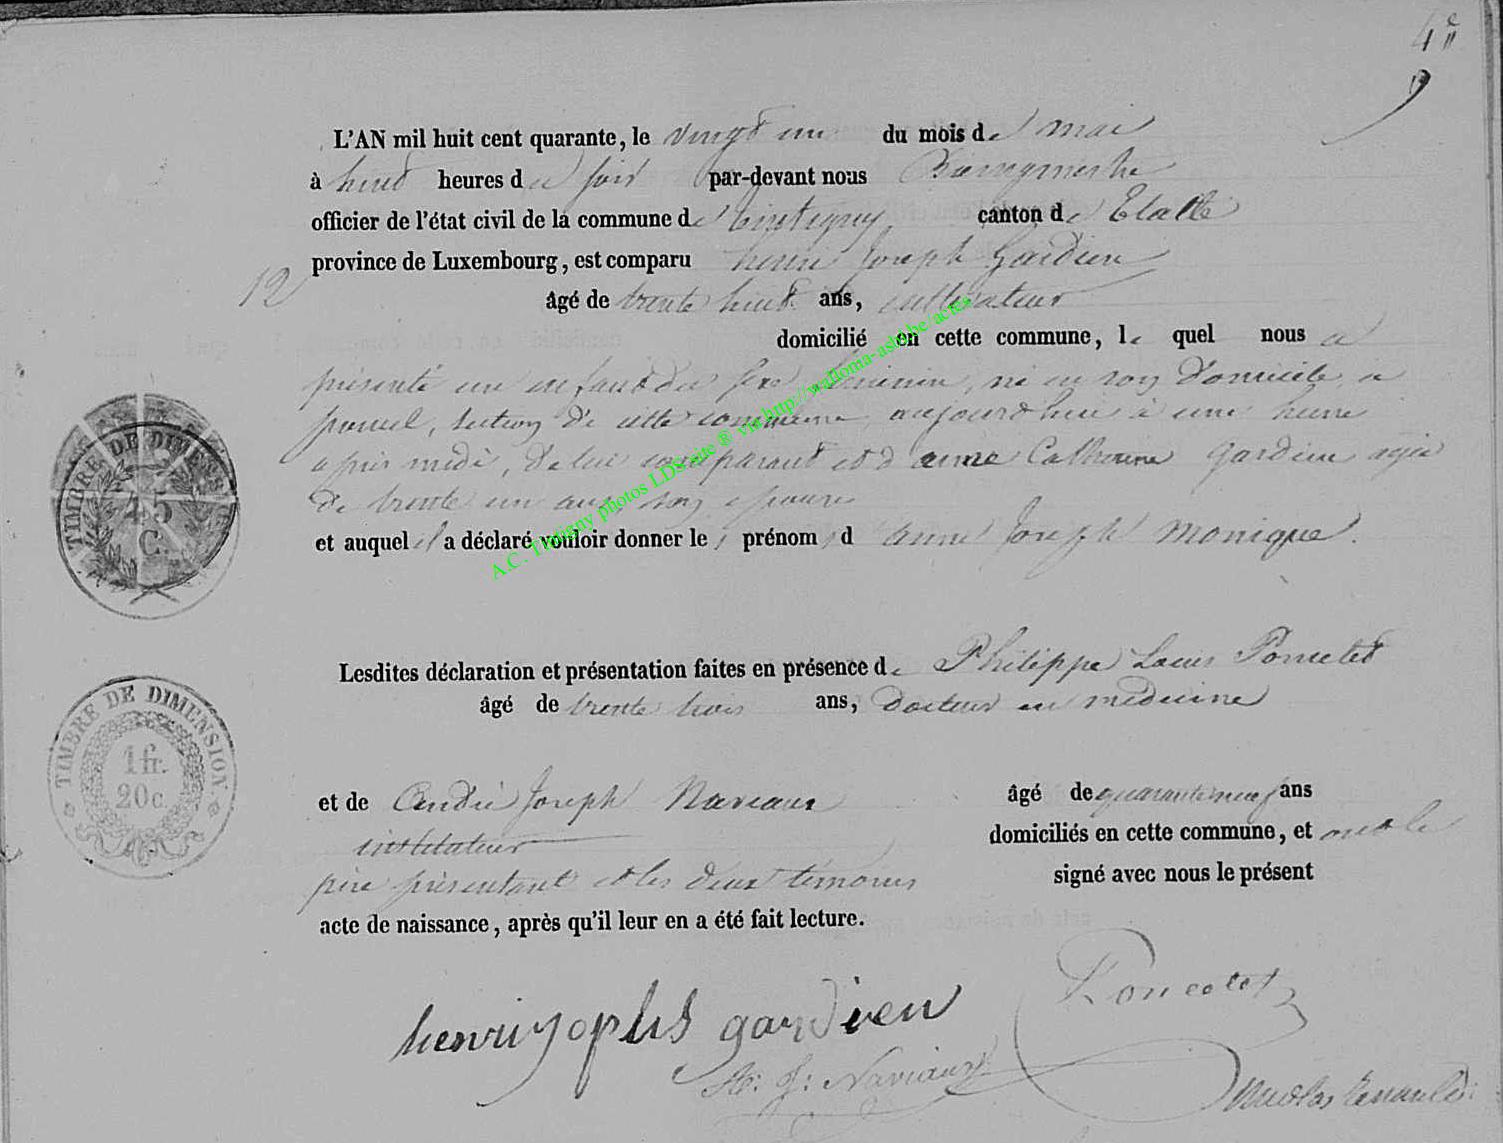 4e
9
L'AN mil huit cent quarante, le vingt un du mois de mai
à huit heures du soir par-devant nous Bourgmestre
officier de l'état civil de la commune de tintigny canton d'Etalle
province de Luxembourg, est comparu henri Joseph Gardien
12
âgé de trente huit ans, cultivateur
domicilié en cette commune, le quel nous a
présenté un enfant du sexe féminin, né en son domicile a
section de cette commune, aujourd'hui à une heure
après midi, de lui comparant et d'anne Catherine gardien agée
de trente un ans, son épouse
et auquel il a déclaré vouloir donner les prénoms d'anne Joseph Monique.
Lesdites déclaration et présentation faites en présence de Philippe Louis Poncelet
âgé de trente trois ans, Docteur en médecine
et de André Joseph Naviaux âgé de quarante neuf ans
instituteur domiciliés en cette commune, et ont le
père présentant et les deux témoins signé avec nous le présent
acte de naissance, après qu'il leur en a été fait lecture.
Poncelet
henri yophs gardien
A: J: Naviaux
Nicolas
TIMBRE DE DIMENSION
45
C.
TIMBRE DE DIMENSION
1 fr.
20 c.
A.C. Tintigny photos LDS site ® via http://walloma-asbl.be/actes